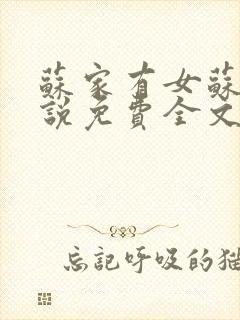 蘇家有女蘇
說免費全文
忘記呼吸的猫